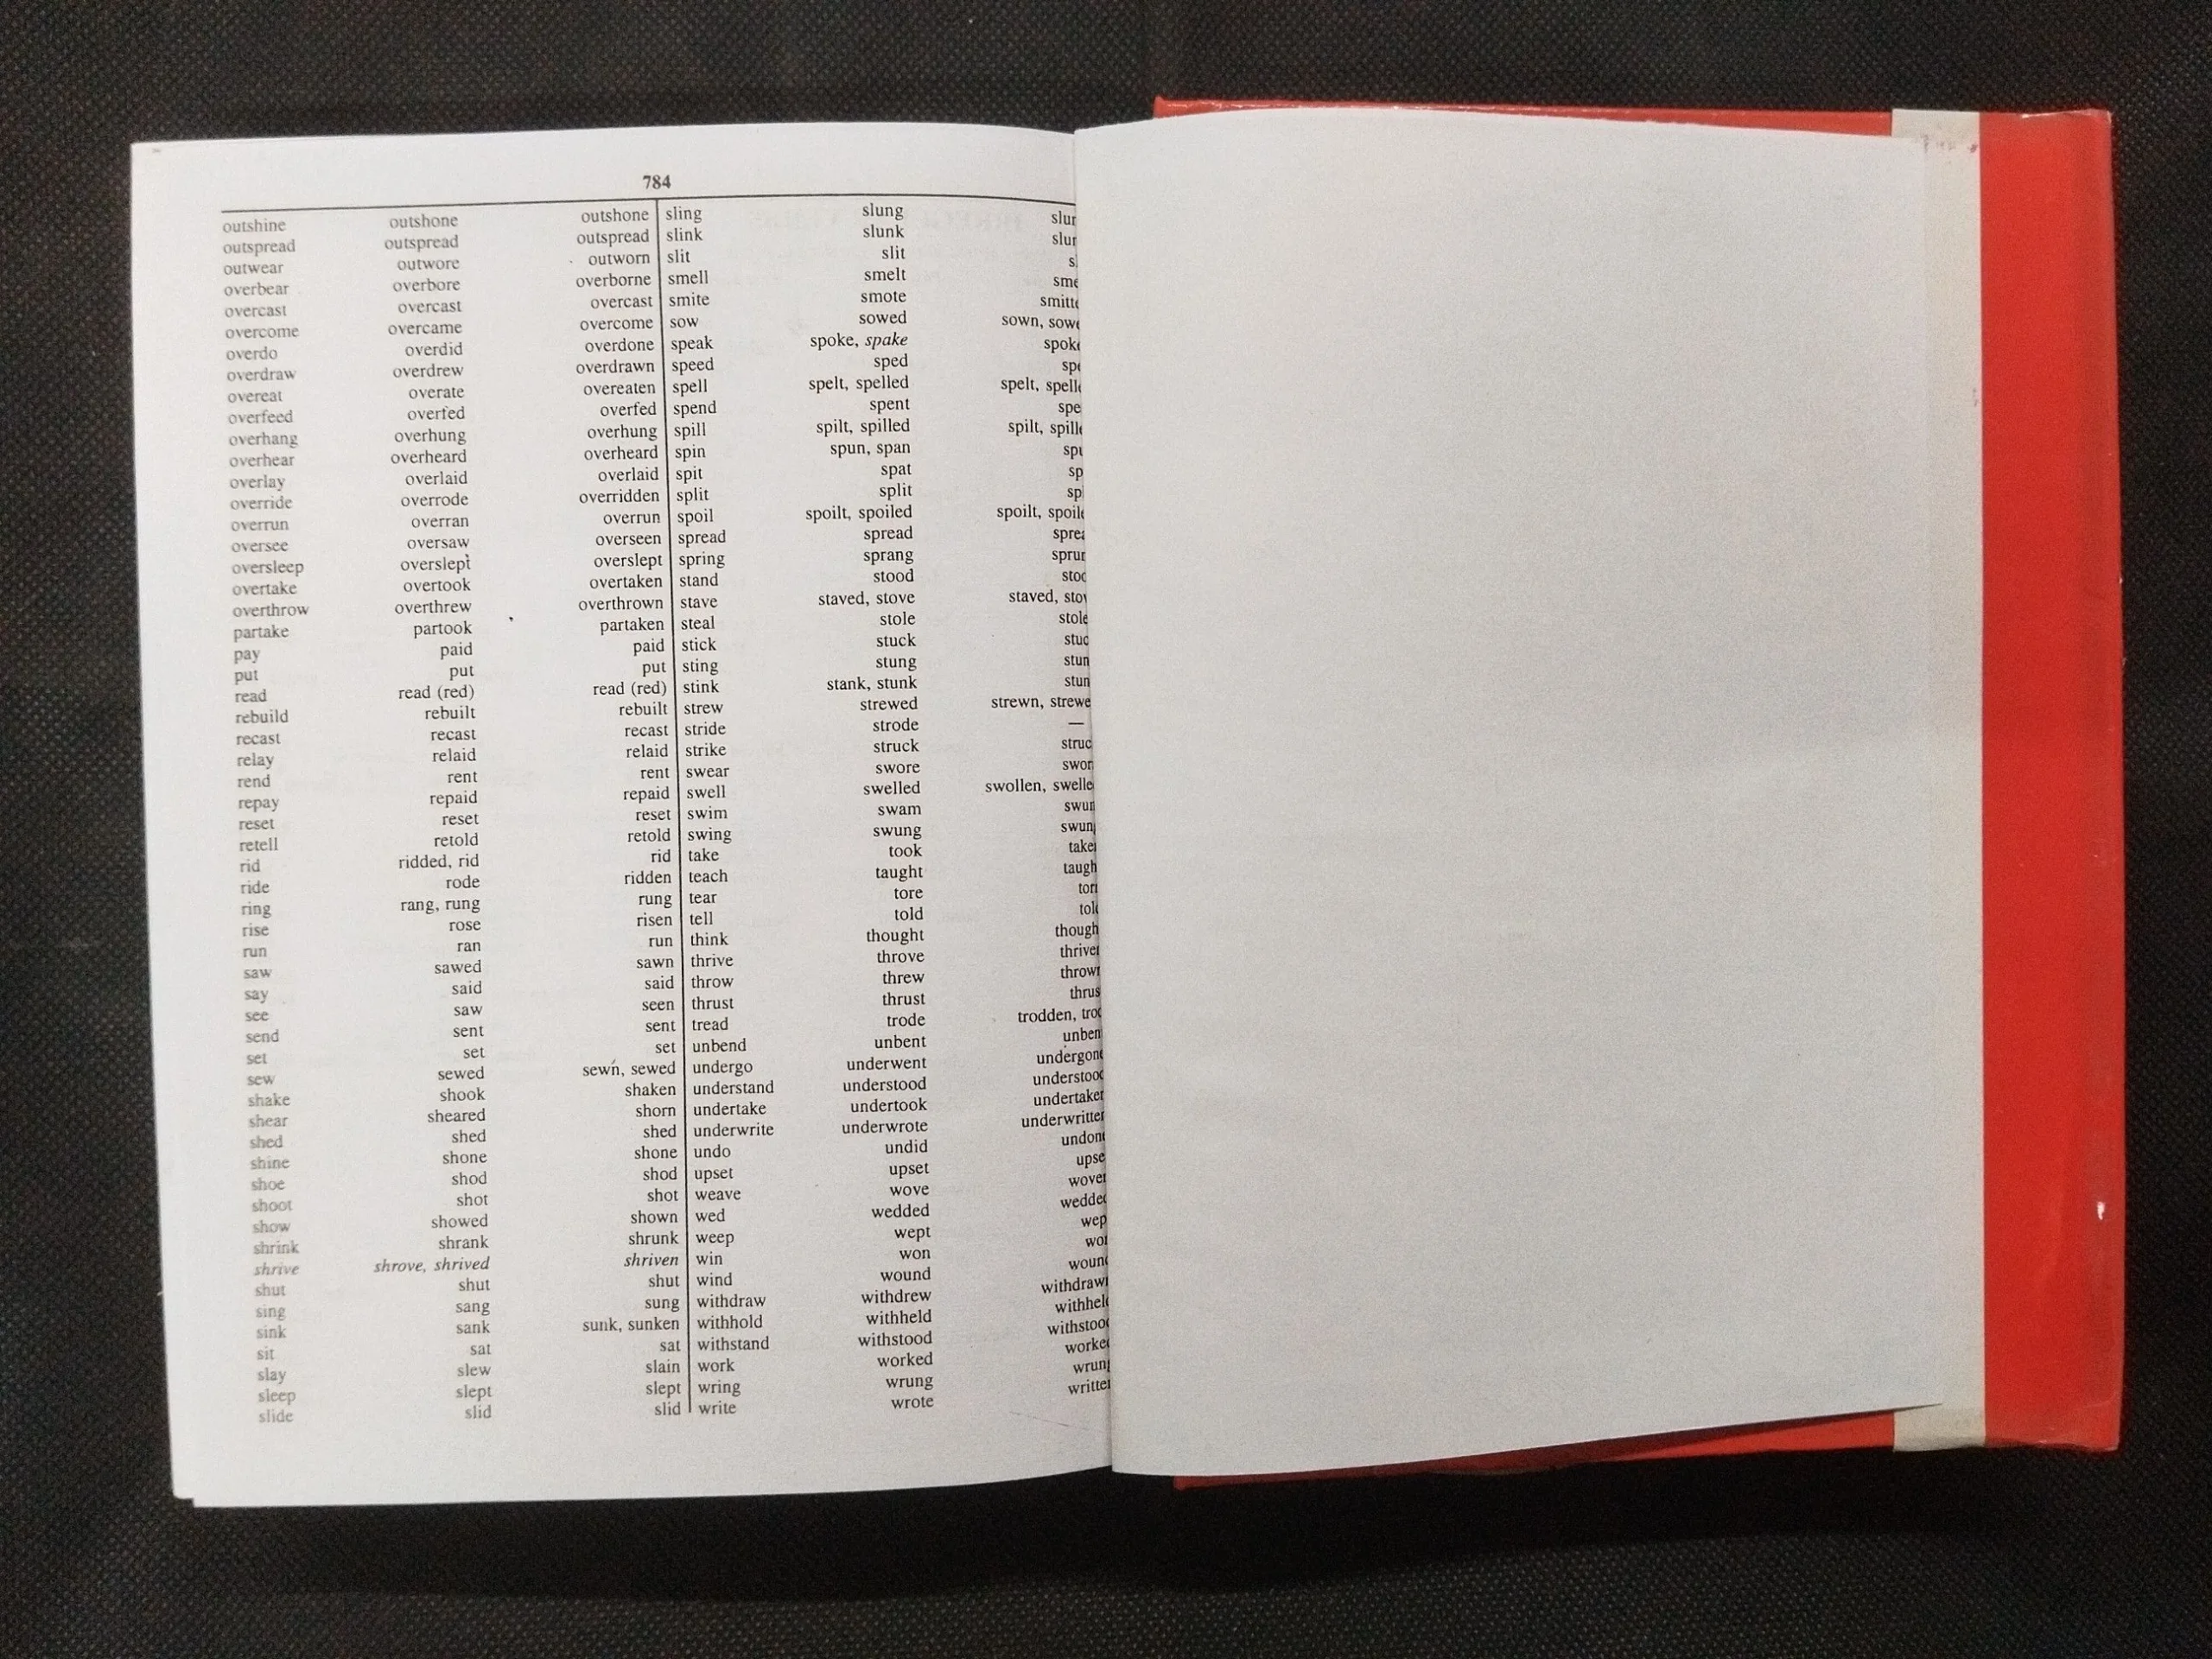 784
outshine outshone outshone
outspread outspread outspread
outwear outwore outworn
overbear overbore overborne
overcast overcast overcast
overcome overcame overcome
overdo overdid overdone
overdraw overdrew overdrawn
overeat overate overeaten
overfeed overfed overfed
overhang overhung overhung
overhear overheard overheard
overlay overlaid overlaid
override overrode overridden
overrun overran overrun
oversee oversaw overseen
oversleep overslept overslept
overtake overtook overtaken
overthrow overthrew overthrown
partake partook partaken
pay paid paid
put put put
read read (red) read (red)
rebuild rebuilt rebuilt
recast recast recast
relay relaid relaid
rend rent rent
repay repaid repaid
reset reset reset
retell retold retold
rid ridded, rid rid
ride rode ridden
ring rang, rung rung
rise rose risen
run ran run
saw sawed sawn
say said said
see saw seen
send sent sent
set set set
sew sewed sewn, sewed
shake shook shaken
shear sheared shorn
shed shed shed
shine shone shone
shoe shod shod
shoot shot shot
show showed shown
shrink shrank shrunk
shrive shrove, shrived shriven
shut shut shut
sing sang sung
sink sank sunk, sunken
sit sat sat
slay slew slain
sleep slept slept
slide slid slid
sling slung slur
slink slunk slur
slit slit s
smell smelt sme
smite smote smitt
sow sowed sown, sow
speak spoke, spake spok
speed sped sp
spell spelt, spelled spelt, spell
spend spent spe
spill spilt, spilled spilt, spill
spin spun, span spu
spit spat sp
split split sp
spoil spoilt, spoiled spoilt, spoil
spread spread sprea
spring sprang sprur
stand stood stoo
stave staved, stove staved, stov
steal stole stole
stick stuck stuc
sting stung stun
stink stank, stunk stun
strew strewed strewn, strewe
stride strode —
strike struck struc
swear swore swor
swell swelled swollen, swelle
swim swam swu
swing swung swun
take took take
teach taught taugh
tear tore tor
tell told tol
think thought though
thrive throve thrive
throw threw throw
thrust thrust thrus
tread trode trodden, tro
unbend unbent unben
undergo underwent undergon
understand understood understoo
undertake undertook undertake
underwrite underwrote underwritte
undo undid undon
upset upset upse
weave wove wove
wed wedded wedde
weep wept wep
win won wo
wind wound woun
withdraw withdrew withdraw
withhold withheld withhel
withstand withstood withstoo
work worked worke
wring wrung wrun
write wrote writte